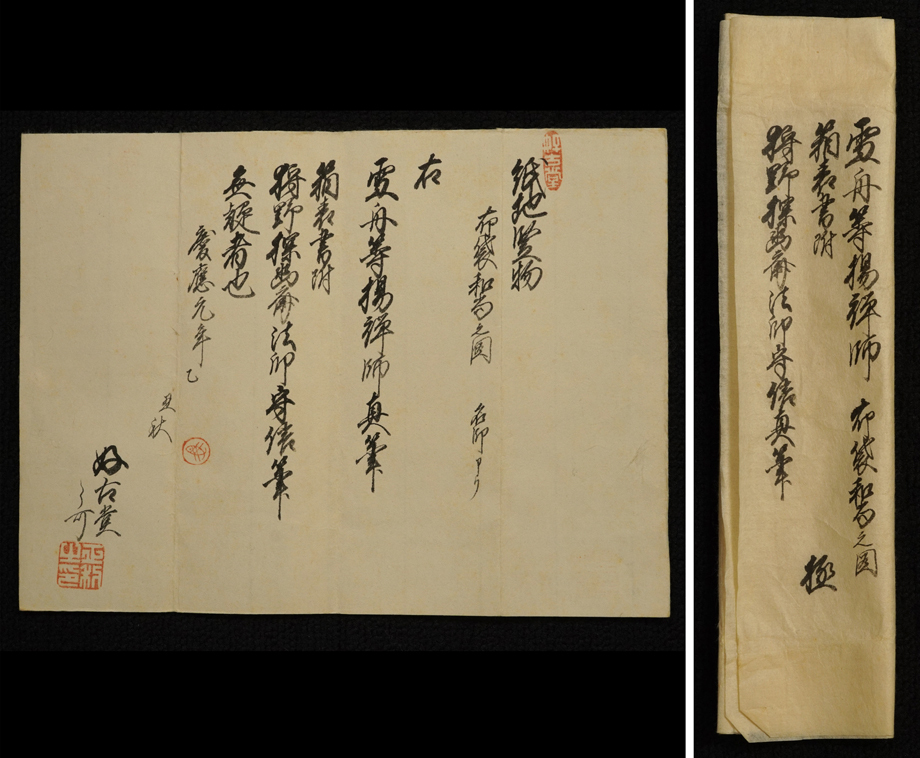 紙地竪物
布袋和尚之図 名印アリ
右
雪舟等揚禅師真筆
箱表書附
狩野探幽斎法印守信筆
無疑者也
慶應元年乙
丑秋
好古堂
雪舟等揚禅師 布袋和尚之図
箱表書附
狩野探幽斎法印守信真筆
極